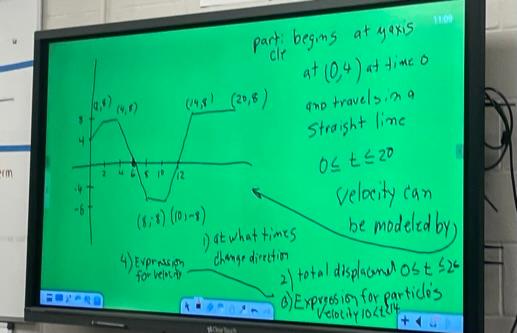 11:09
particle begins at y axis
at (0,4) at time 0
and travels in a
straight line
0 ≤ t ≤ 20
velocity can
be modeled by
(2,8)
(4,8)
(14,8)
(20,8)
8
4
2 4 6 8 10 12
-4
-6
(8,-8) (10,-8)
1) at what times
change direction
4) Expression
for velocity
2) total displacement 0≤t≤20
3) Expression for particle's
velocity 10<t<14